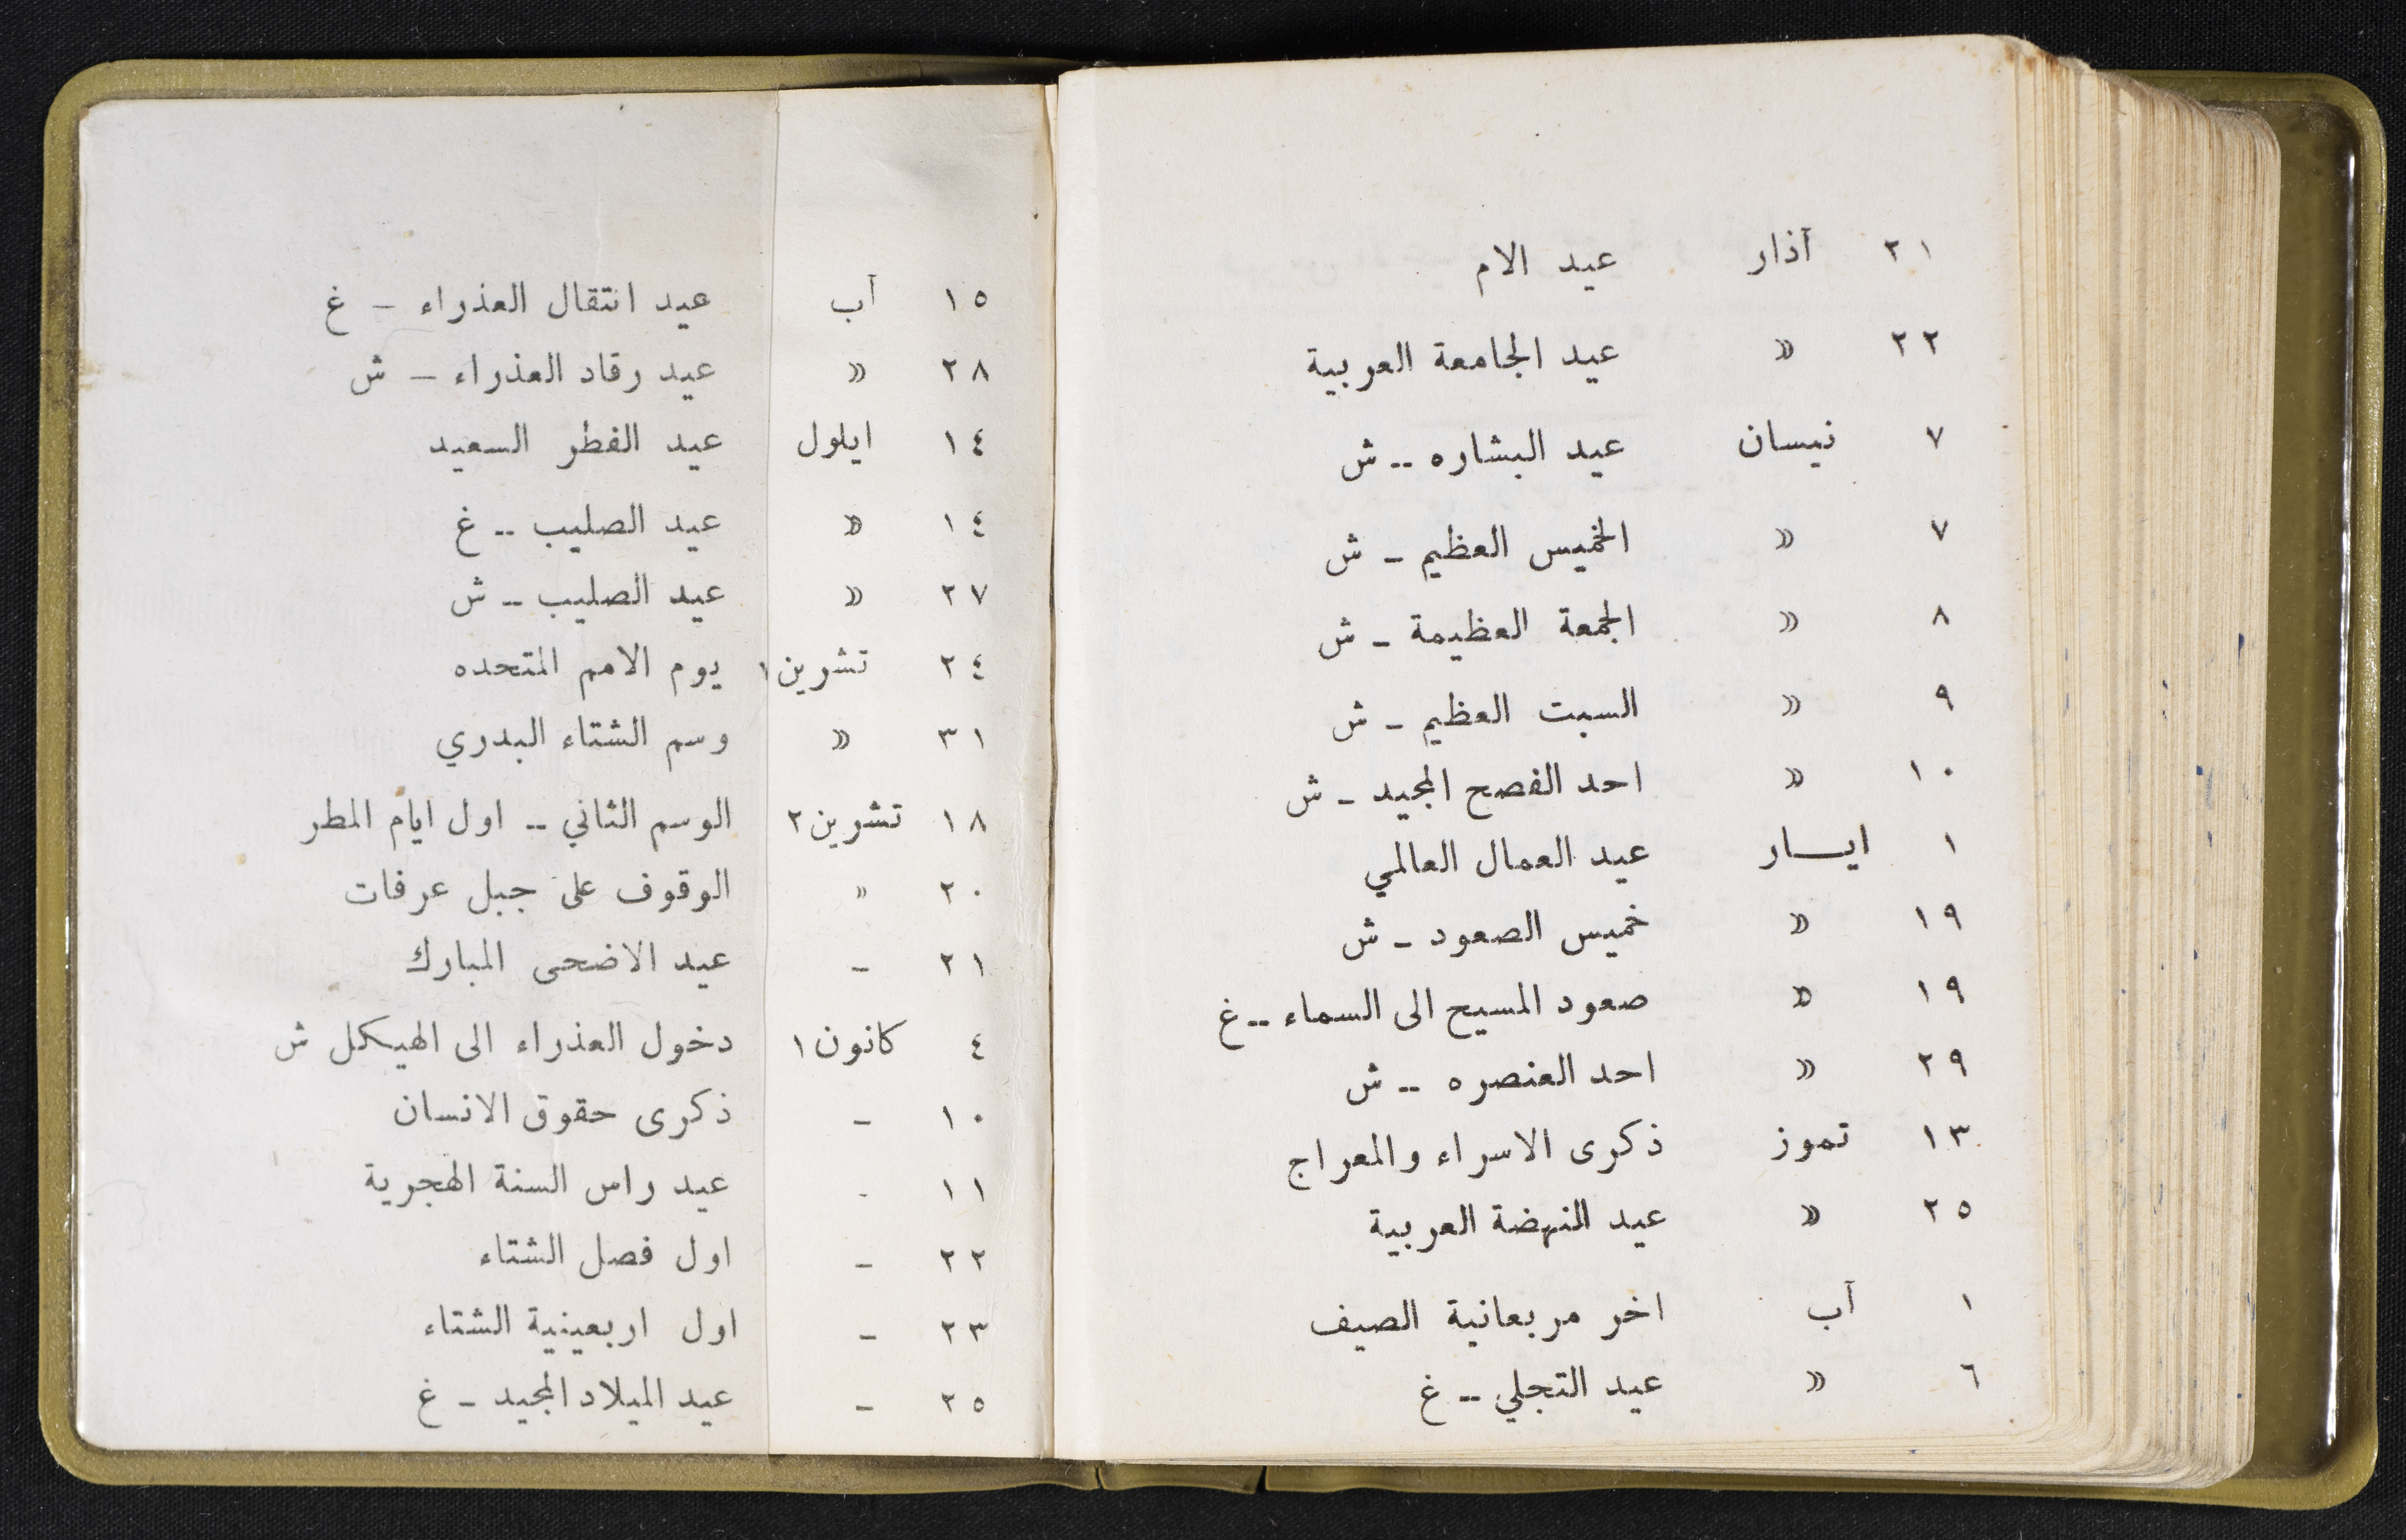 ٢١ آذار عيد الام
٢٢ » عيد الجامعة العربية
٧ نيسان عيد البشاره -- ش
٧ » الخميس العظيم - ش
٨ » الجمعة العظيمة - ش
٩ » السبت العظيم - ش
١٠ » احد الفصح المجيد - ش
١ ايسار عيد العمال العالمي
١٩ » خميس الصعود - ش
١٩ » صعود المسيح الى السماء -- غ
٢٩ » احد العنصره -- ش
١٣ تموز ذكرى الاسراء والمعراج
٢٥ » عيد النهضة العربية
١ آب اخر مربعانية الصيف
٦ » عيد التجلي -- غ
١٥ آب عيد انتقال العذراء - غ
٢٨ » عيد رقاد العذراء - ش
١٤ ايلول عيد الفطر السعيد
١٤ » عيد الصليب -- غ
٢٧ » عيد الصليب -- ش
٢٤ تشرين١ يوم الامم المتحده
٣١ » وسم الشتاء البدري
١٨ تشرين٢ الوسم الثاني -- اول ايام المطر
٢٠ » الوقوف على جبل عرفات
٢١ - عيد الاضحى المبارك
٤ كانون١ دخول العذراء الى الهيكل ش
١٠ - ذكرى حقوق الانسان
١١ - عيد راس السنة الهجرية
٢٢ - اول فصل الشتاء
٢٣ - اول اربعينية الشتاء
٢٥ - عيد الميلاد المجيد - غ